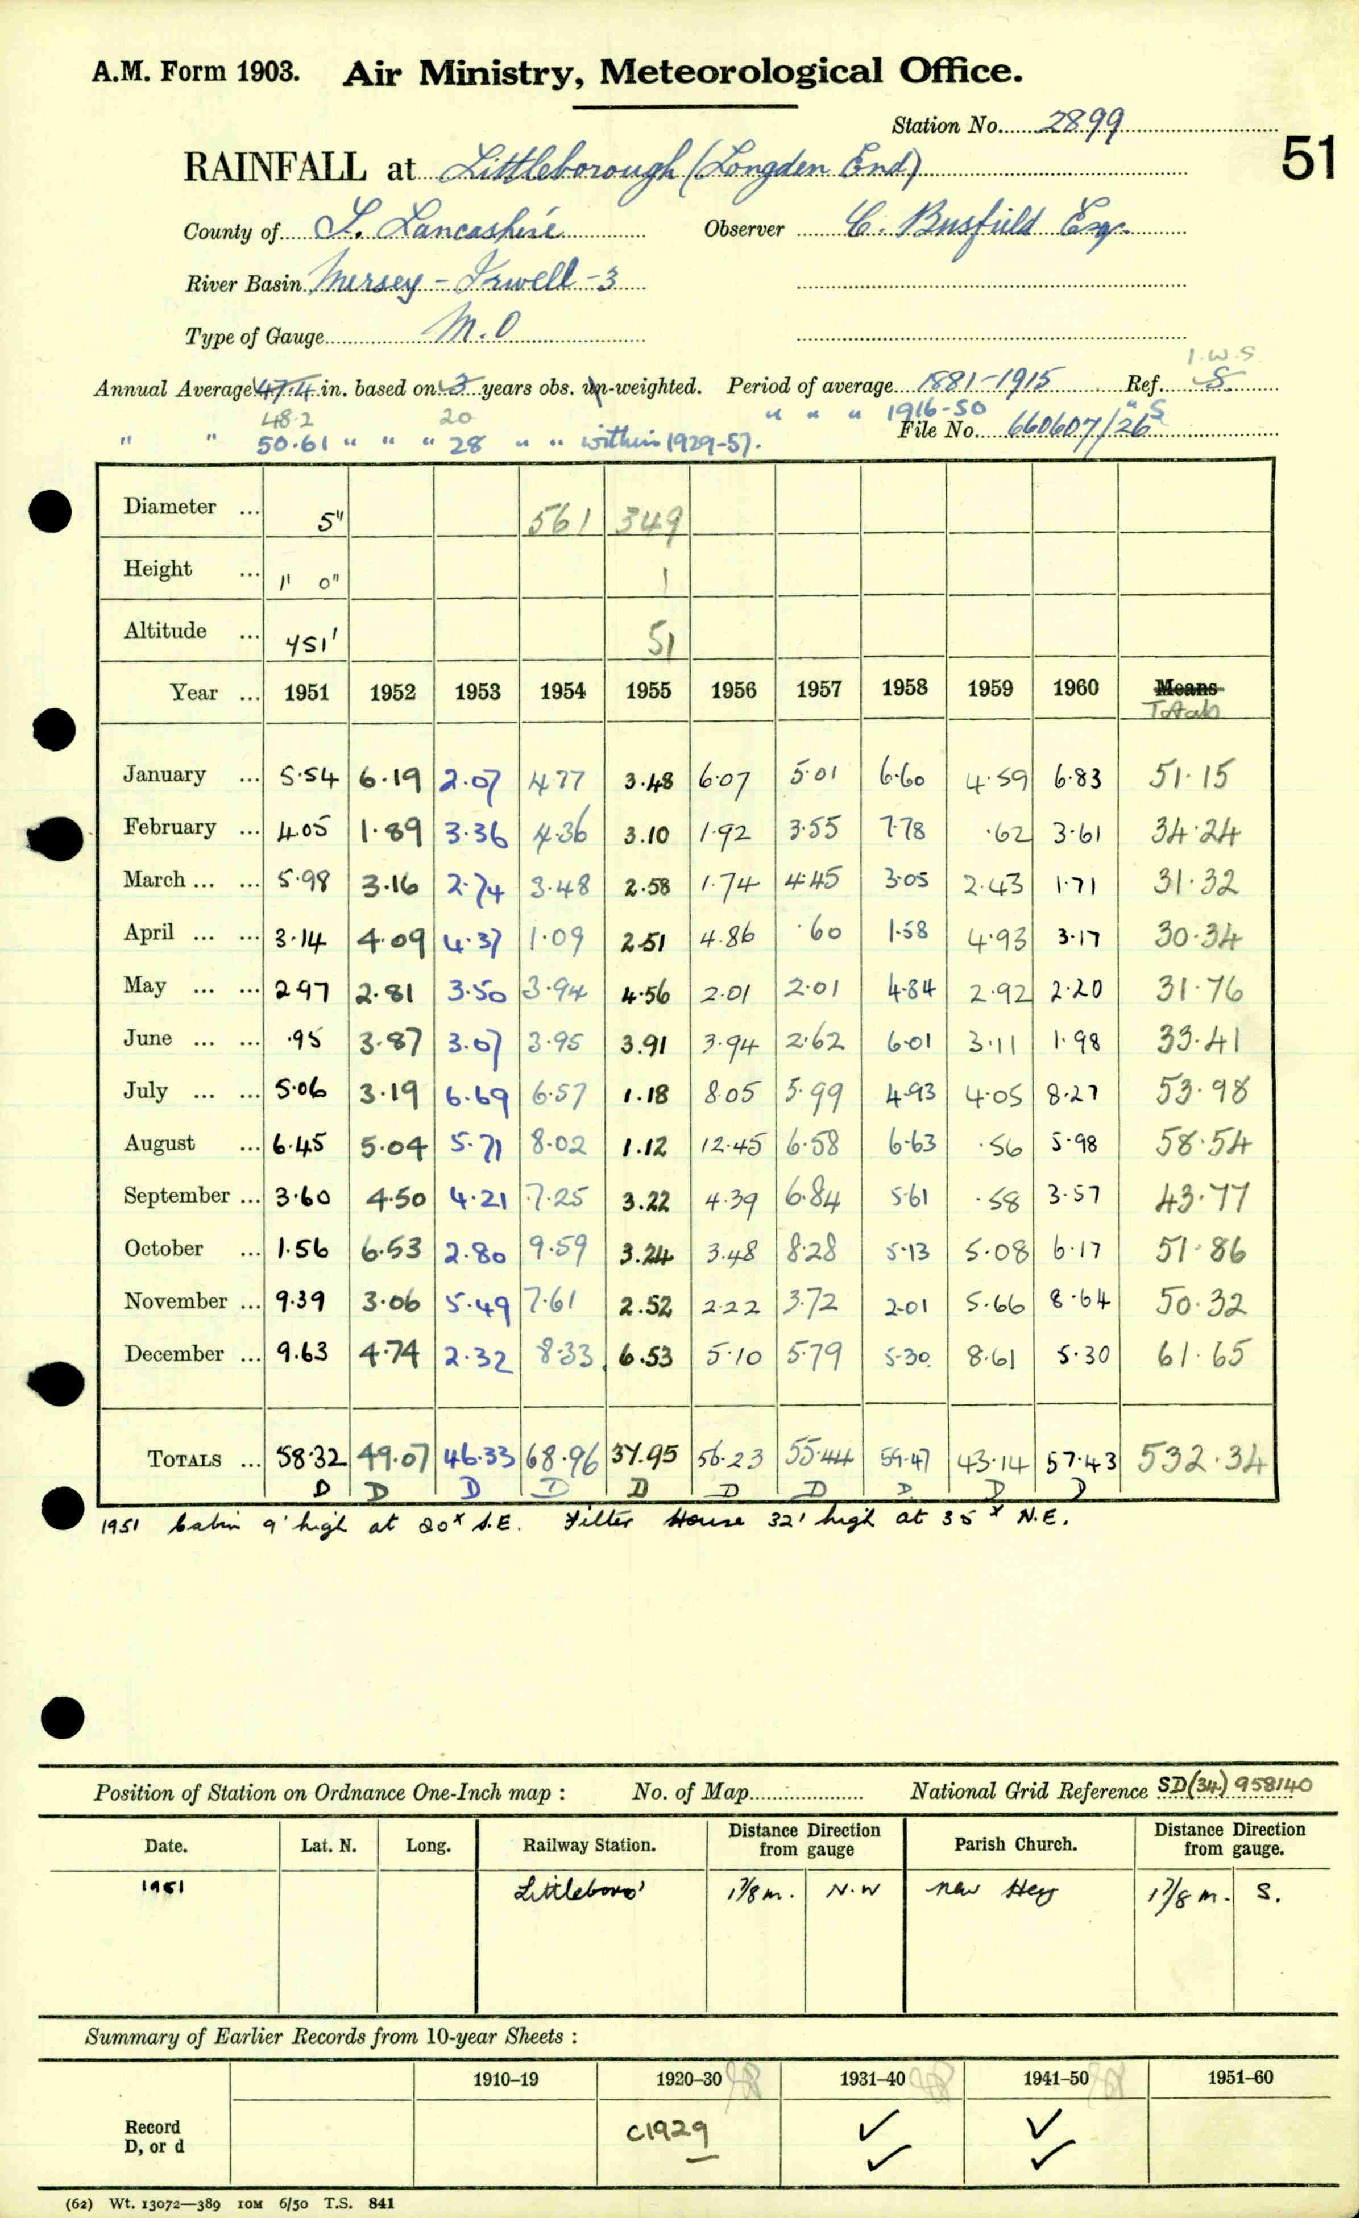 A.M. Form 1903. Air Ministry, Meteorological Office.
Station No. 2899
51
RAINFALL at Littleborough (Longden End)
County of S. Lancashire Observer C. Busfield Esq.
River Basin Mersey - Irwell - 3
Type of Gauge M.O
I.W.S.
Annual Average 47.4 in. based on 3 years obs. un-weighted. Period of average 1881-1915 Ref. S.
48.2 20 " " " 1916-50 " S
" " 50.61 " " " 28 " " within 1929-57. File No. 660607/26
Diameter ... 5" 561 349
Height ... 1' 0" 1
Altitude ... 451' 51
Year ... 1951 1952 1953 1954 1955 1956 1957 1958 1959 1960 Means
Totals
January ... 5.54 6.19 2.07 4.77 3.48 6.07 5.01 6.60 4.59 6.83 51.15
February ... 4.05 1.89 3.36 4.36 3.10 1.92 3.55 7.78 .62 3.61 34.24
March ... ... 5.98 3.16 2.74 3.48 2.58 1.74 4.45 3.05 2.43 1.71 31.32
April ... ... 3.14 4.09 4.37 1.09 2.51 4.86 .60 1.58 4.93 3.17 30.34
May ... ... 2.97 2.81 3.50 3.94 4.56 2.01 2.01 4.84 2.92 2.20 31.76
June ... ... .95 3.87 3.07 3.95 3.91 3.94 2.62 6.01 3.11 1.98 33.41
July ... ... 5.06 3.19 6.69 6.57 1.18 8.05 5.99 4.93 4.05 8.27 53.98
August ... 6.45 5.04 5.71 8.02 1.12 12.45 6.58 6.63 .56 5.98 58.54
September ... 3.60 4.50 4.21 7.25 3.22 4.39 6.84 5.61 .58 3.57 43.77
October ... 1.56 6.53 2.80 9.59 3.24 3.48 8.28 5.13 5.08 6.17 51.86
November ... 9.39 3.06 5.49 7.61 2.52 2.22 3.72 2.01 5.66 8.64 50.32
December ... 9.63 4.74 2.32 8.33 6.53 5.10 5.79 5.30 8.61 5.30 61.65
TOTALS ... 58.32 49.07 46.33 68.96 37.95 56.23 55.44 59.47 43.14 57.43 532.34
D D D D D D D D D D
1951 Cabin 9' high at 20x S.E. Filter House 32' high at 35x N.E.
Position of Station on Ordnance One-Inch map : No. of Map National Grid Reference SD(34) 958140
Date. Lat. N. Long. Railway Station. Distance Direction from gauge Parish Church. Distance Direction from gauge.
1951 Littleboro' 1 7/8 m. N.W New Hey 1 7/8 m. S.
Summary of Earlier Records from 10-year Sheets :
1910-19 1920-30 1931-40 1941-50 1951-60
Record C1929 ✓ ✓
D, or d ✓ ✓
(62) Wt. 13072—389 10M 6/50 T.S. 841